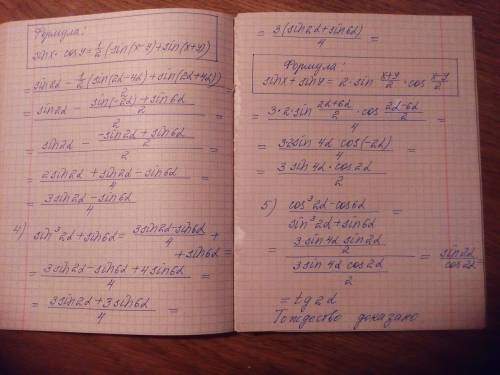 Формула:
sinx · cosy = 1/2 (sin(x-y) + sin(x+y))
= sin2α - 1/2 (sin(2α-4α) + sin(2α+4α)) / 2 =
= sin2α - (sin(-2α) + sin6α)/2 / 2 =
= sin2α - (-sin2α + sin6α)/2 / 2 =
= (2sin2α + sin2α - sin6α) / 4 =
= (3sin2α - sin6α) / 4
4) sin³2α + sin6α = (3sin2α - sin6α) / 4 +
+ sin6α =
= (3sin2α - sin6α + 4sin6α) / 4 =
= (3sin2α + 3sin6α) / 4 =
= 3(sin2α + sin6α) / 4 =
Формула:
sinx + siny = 2 · sin (x+y)/2 · cos (x-y)/2
= 3 · 2 · sin (2α+6α)/2 · cos (2α-6α)/2 / 4 =
= 32sin4α cos(-2α) / 4 =
= 3sin4α · cos2α / 2
5) (cos³2α - cos6α) / (sin³2α + sin6α) =
= (3sin4α sin2α / 2) / (3sin4α cos2α / 2) = sin2α / cos2α
= tg2α
Тождество доказано